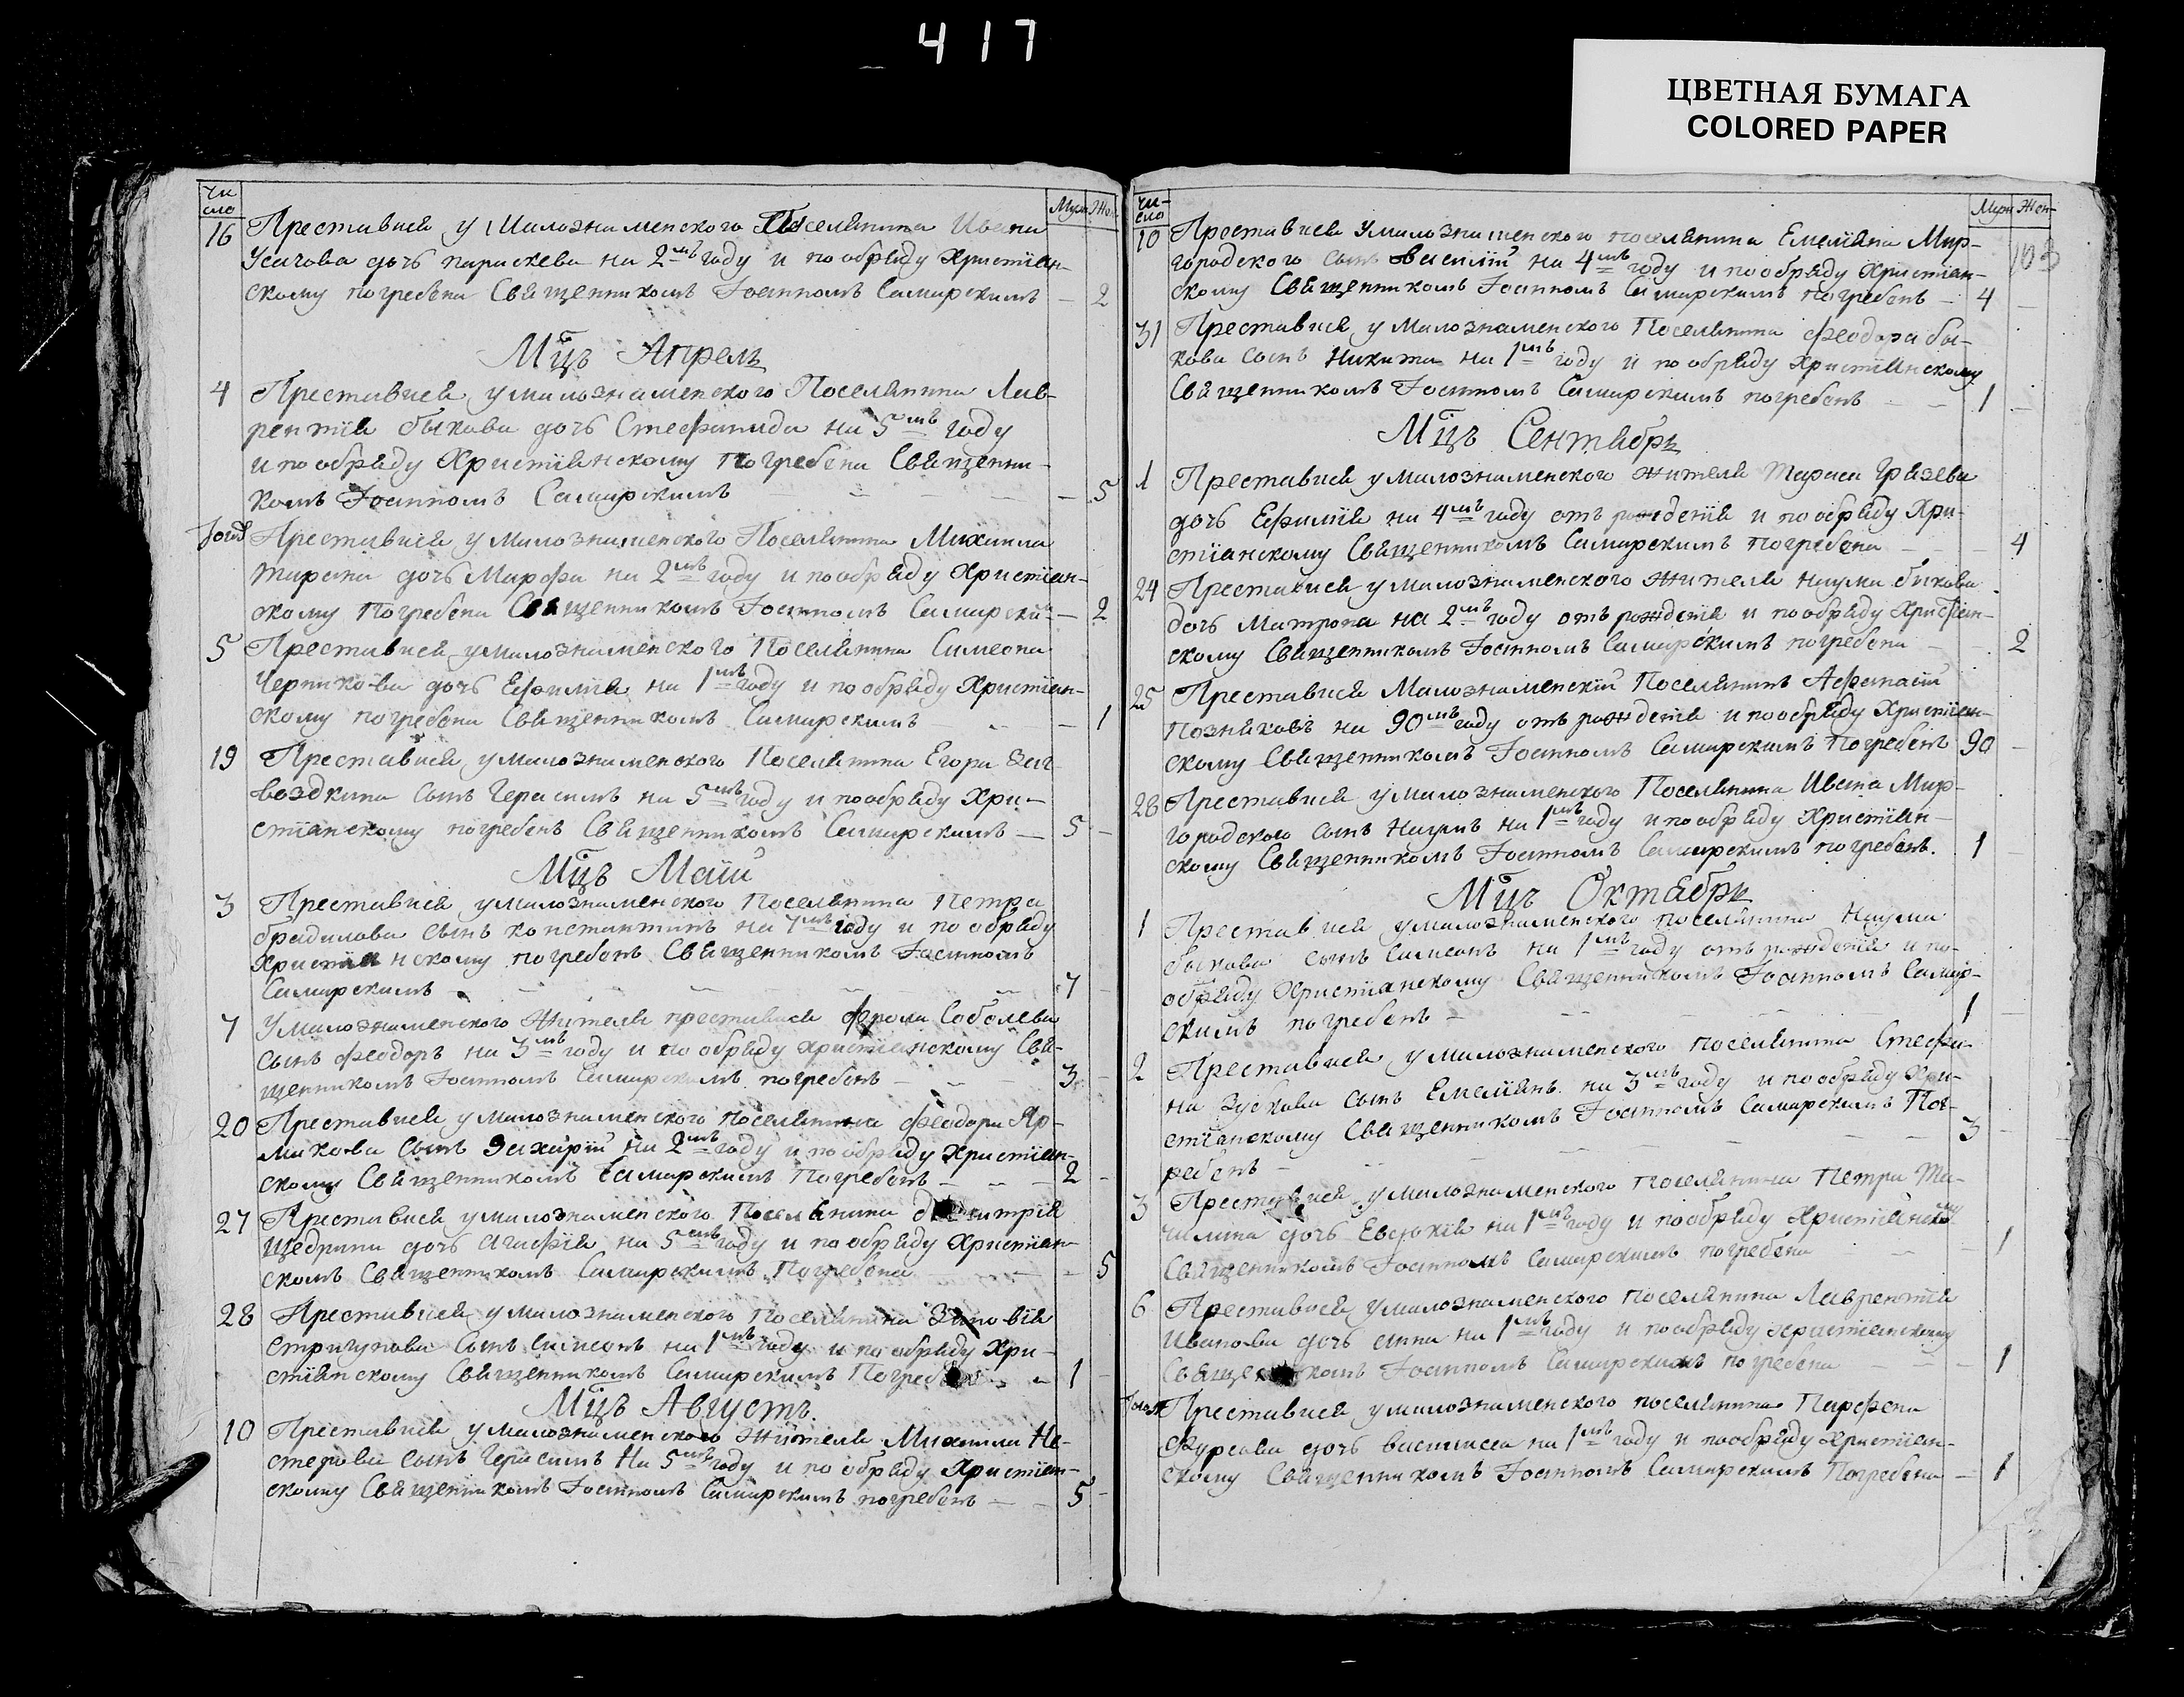 417
ЦВЕТНАЯ БУМАГА
COLORED PAPER
Чи
сло
Муж Жен
16 Преставися у Малознаменского Поселянина Ивана
Усачова дочь параскева на 2мъ году и по обряду Христiан-
скому погребена Священникомъ Iоанномъ Самарскимъ — 2
Мцъ Апрель
4 Преставися у малознаменского Поселянина Лав-
рентiя быкова дочь Стефанида на 5мъ году
и по обряду Христiянскому погребена Священни-
комъ Iоанномъ Самарскимъ — 5
Преставися у малознаменского Поселянина Михаила
тарана дочь Марфа на 2мъ году и по обряду Христiан-
скому погребена Священникомъ Iоанномъ Самарски — 2
5 Преставися у малознаменского Поселянина Симеона
Черникова дочь Ефимiя на 1мъ году и по обряду Христiан-
скому погребена Священникомъ Самарскимъ — 1
19 Преставися у малознаменского Поселянина Егора Заг-
воздкина сынъ Герасимъ на 5мъ году и по обряду Хри-
стiанскому погребенъ Священникомъ Самарскимъ — 5 -
Мцъ Маiй
3 Преставися у малознаменского Поселянина Петра
брадилова сынъ константинъ на 7мъ году и по обряду
Христiанскому погребенъ Священникомъ Iоанномъ
Самарскимъ — 7 -
7 У малознаменского Жителя преставися фрола Соболева
сынъ феодоръ на 3мъ году и по обряду христiянскому Свя-
щенникомъ Iоанномъ Самарскимъ погребенъ — 3 -
20 Преставися у малознаменского поселянина феодора Яр-
макова сынъ Захарiй на 2мъ году и по обряду Христiан-
скому Священникомъ Самарскимъ Погребенъ — 2 -
27 Преставися у малознаменского Поселянина димитрiя
щедрина дочь Агафiя на 5мъ году и по обряду Христiан
скомъ Священникомъ Самарскимъ Погребена - 5
28 Преставися у малознаменского Поселянина Зиновiя
стригунова сынъ симеонъ на 1мъ году и по обряду Хри-
стiянскому Священникомъ Самарскимъ 1 -
Мцъ Августъ
10 Преставися у малознаменского Жителя Михаила Не-
стерова сынъ Герасимъ На 5мъ году и по обряду Христiан-
скому Священникомъ Iоанномъ Самарскимъ погребенъ — 5 -
Чи-
сло
Муж Жен-
103
10 Преставися У малознаменского поселянина Емелiяна Мир-
городского сынъ василiй на 4мъ году и по обряду Христiан-
скому Священникомъ Iоанномъ Самарскимъ погребенъ — 4 -
31 Преставися у Малознаменского Поселянина феодора бы-
кова сынъ Никита на 1мъ году и по обряду Христiянскому
Священникомъ Iоанномъ Самарскимъ погребенъ — 1 -
Мцъ Сентябрь
1 Преставися у малознаменского жителя Тараса Грязева
дочь Ефимiя на 4мъ году отъ рождетiя и по обряду Хри-
стiанскому Священникомъ Самарскимъ Погребена — 4
24 Преставися у малознаменского жителя наума быкова
дочь Матрона на 2мъ году отъ рождетiя и по обряду Христiан-
скому Священникомъ Iоанномъ Самарскимъ погребена — 2
25 Преставися Малознаменскiй Поселянинъ Афанасiй
Позняковъ на 90мъ году отъ рождетiя и по обряду Христiан-
скому Священникомъ Iоанномъ Самарскимъ Погребенъ 90 -
28 Преставися у малознаменского Поселянина Ивана Мир-
городского сынъ Наумъ на 1мъ году и по обряду Христiан-
скому Священникомъ Iоанномъ Самарскимъ погребенъ. 1 -
Мцъ Октябрь
1 Преставися у малознаменского поселянина Наума
быкова сынъ Симеонъ на 1мъ году отъ рождетiя и по-
обряду Христiанскому Священникомъ Iоанномъ Самар-
скимъ погребенъ — 1
2 Преставися у малознаменского поселянина Стефа-
на Зускова сынъ Емелiянъ на 3мъ году и по обряду Хри-
стiанскому Священникомъ Iоанномъ Самарскимъ Пог-
ребенъ — 3 -
3 Преставися у малознаменского поселянина Петра Та-
чилина дочь Евдокiя на 1мъ году и по обряду Христiянскому
Священникомъ Iоанномъ Самарскимъ погребена — 1
6 Преставися у малознаменского поселянина Лаврентiя
Иванова дочь анна на 1мъ году и по обряду христiанскому
Iоанномъ Самарскимъ погребена — 1
Преставися у малознаменского поселянина Парфена
Фурсова дочь василиса на 1мъ году и по обряду Христiан-
скому Священникомъ Iоанномъ Самарскимъ Погребена — 1